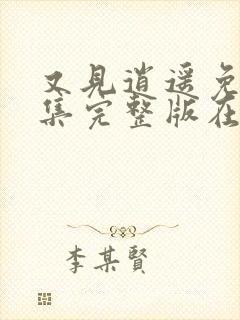 又见逍遥免
集完整版在
李某賢